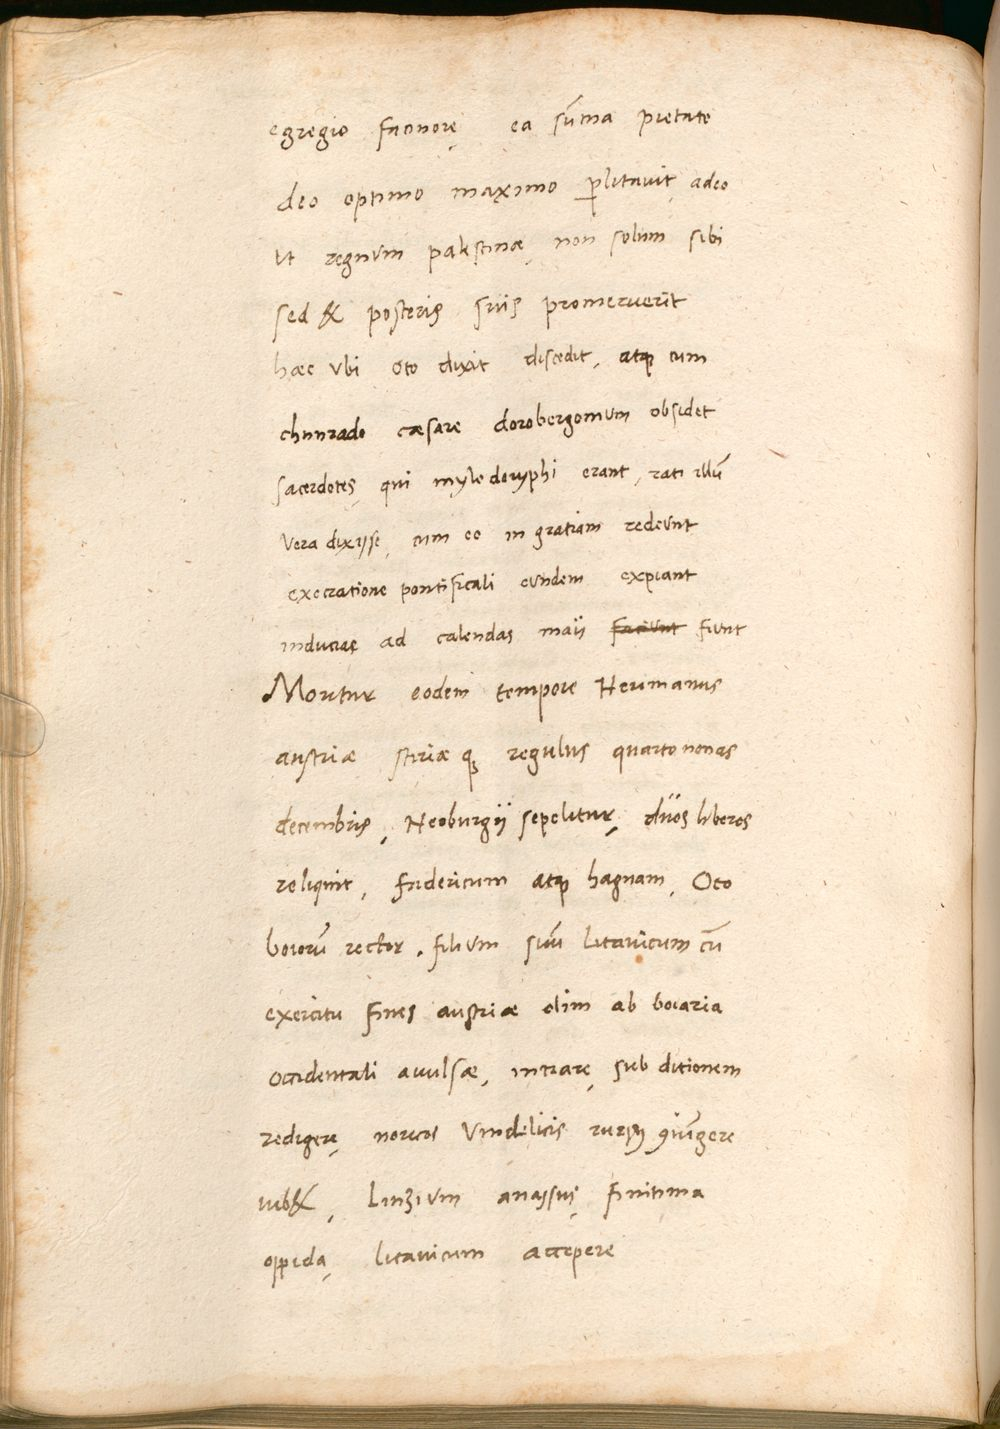 egregio facinore, ea sūma pietate
deo optimo maximo ꝑlitavit, adeo
ut regnum palestinæ, non solum sibi
sed & posteris suis promeruerit
hæc ubi Oto dixit discedit, atqꝫ cum
chunrado cæsare dorobergomum obsidet
sacerdotes, qui myledoryphi erant, rati illū
vera dixisse, cum eo in gratiam redeunt
execratione pontificali eundem expiant
induciæ ad calendas maii faciunt fiunt
Moritur eodem tempore Herimanus
austriæ stiriæ qꝫ regulus quarto nonas
decembris, Neoburgii sepelitur, duos liberos
reliquit, fridericum atqꝫ hagnam, Oto
boiorū rector, filium suū litavicum cū
exercitu fines austriæ olim ab boiaria
occidentali avulsæ, intrare, sub ditionem
redigere, noricos Vindelicis rursꝫ ꝯiūgere
iub&, Linzium anassus, finitima
oppida, litavicum accepere